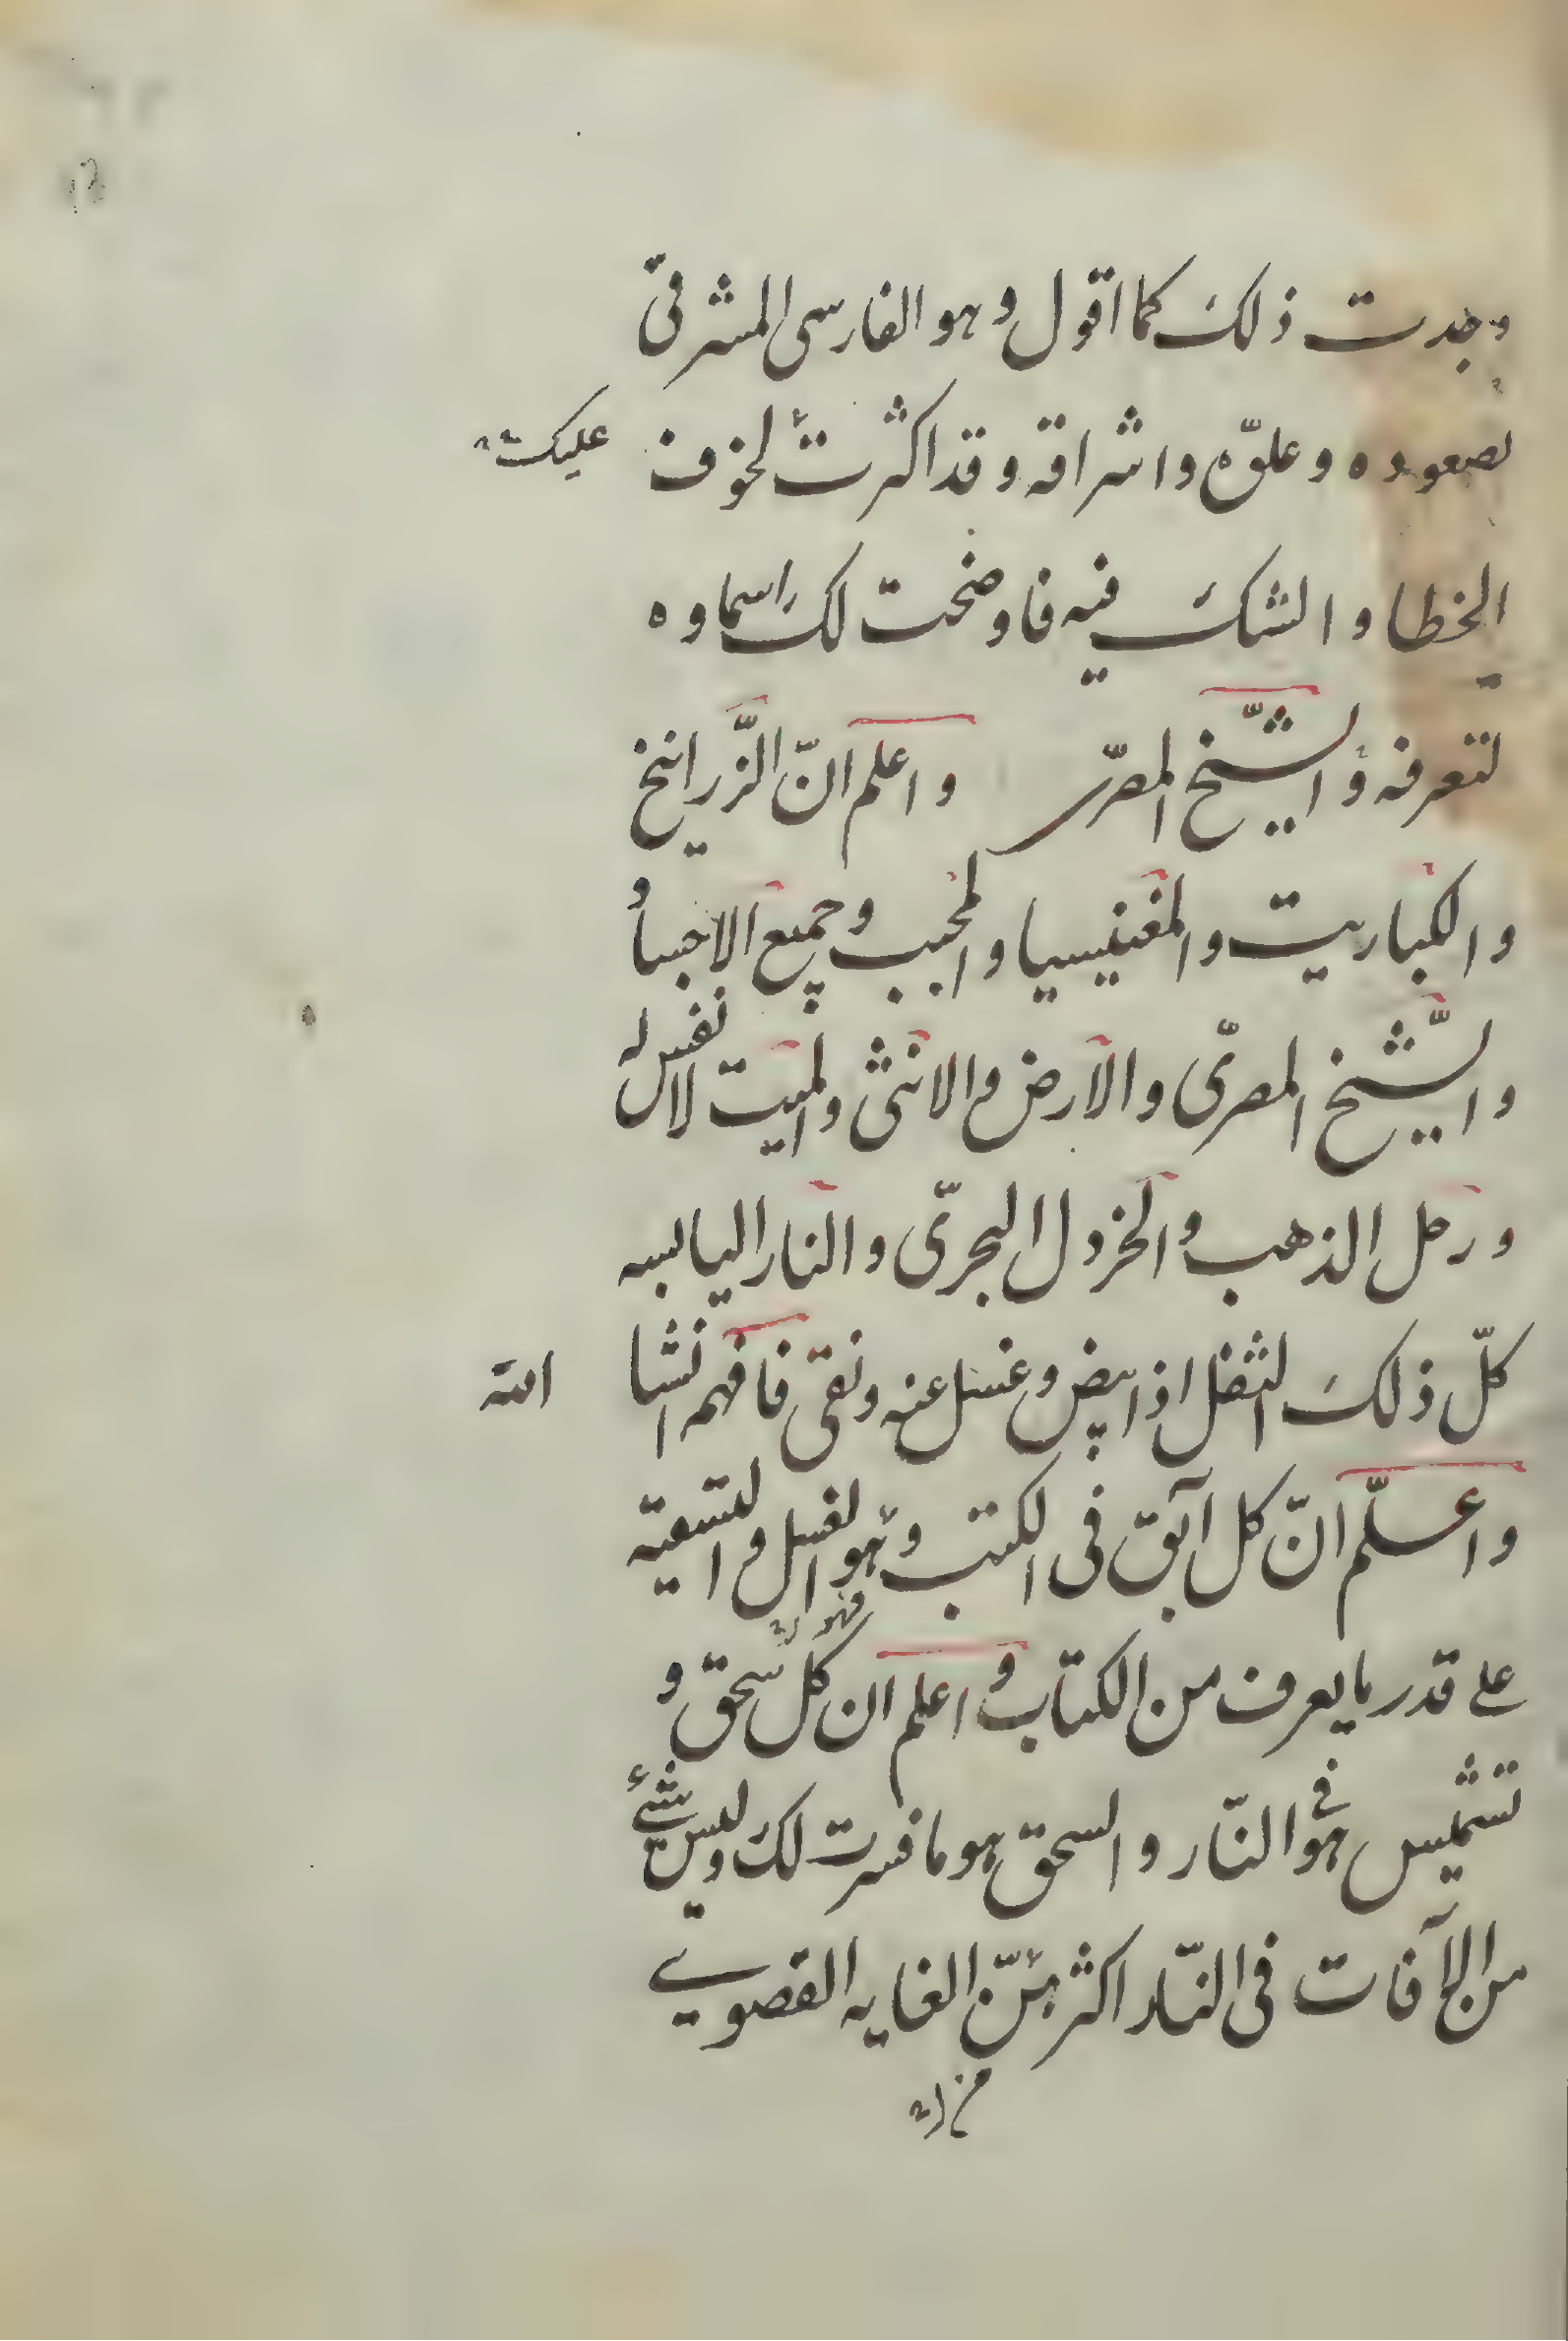 وجدت ذلك كما اقول وهو الفارسى المشرقىّ
لصعوده وعلوّه واشراقه وقد اكثرت لخوف عليك
الخطا والشك فيه فاوضحت لك اسماوه
لتعرفه والشّيخ المصرّى واعلم انّ الزّرانيخ
والكباريت والمغنيسيا والمحبب وجميع الاجسا
والشّيخ المصرىّ والارض والانثى والميت لا نفس له
و زحل الذهب والخردل البحرىّ والنار اليابسه
كلّ ذلك الثفل اذا ابيض وغسل عنه ونقى فافهم انشا الله
واعلّم انّ كل آبق فى الكتب وهو الغسل والتسقيه
على قدر ما يعرف من الكتاب واعلم ان كل سحق و
تشميس فهو فى النّار والسحق هو ما فسرت لك وليس شئ
من الآفات فى النّار اكثر منّ الغايه القصوى